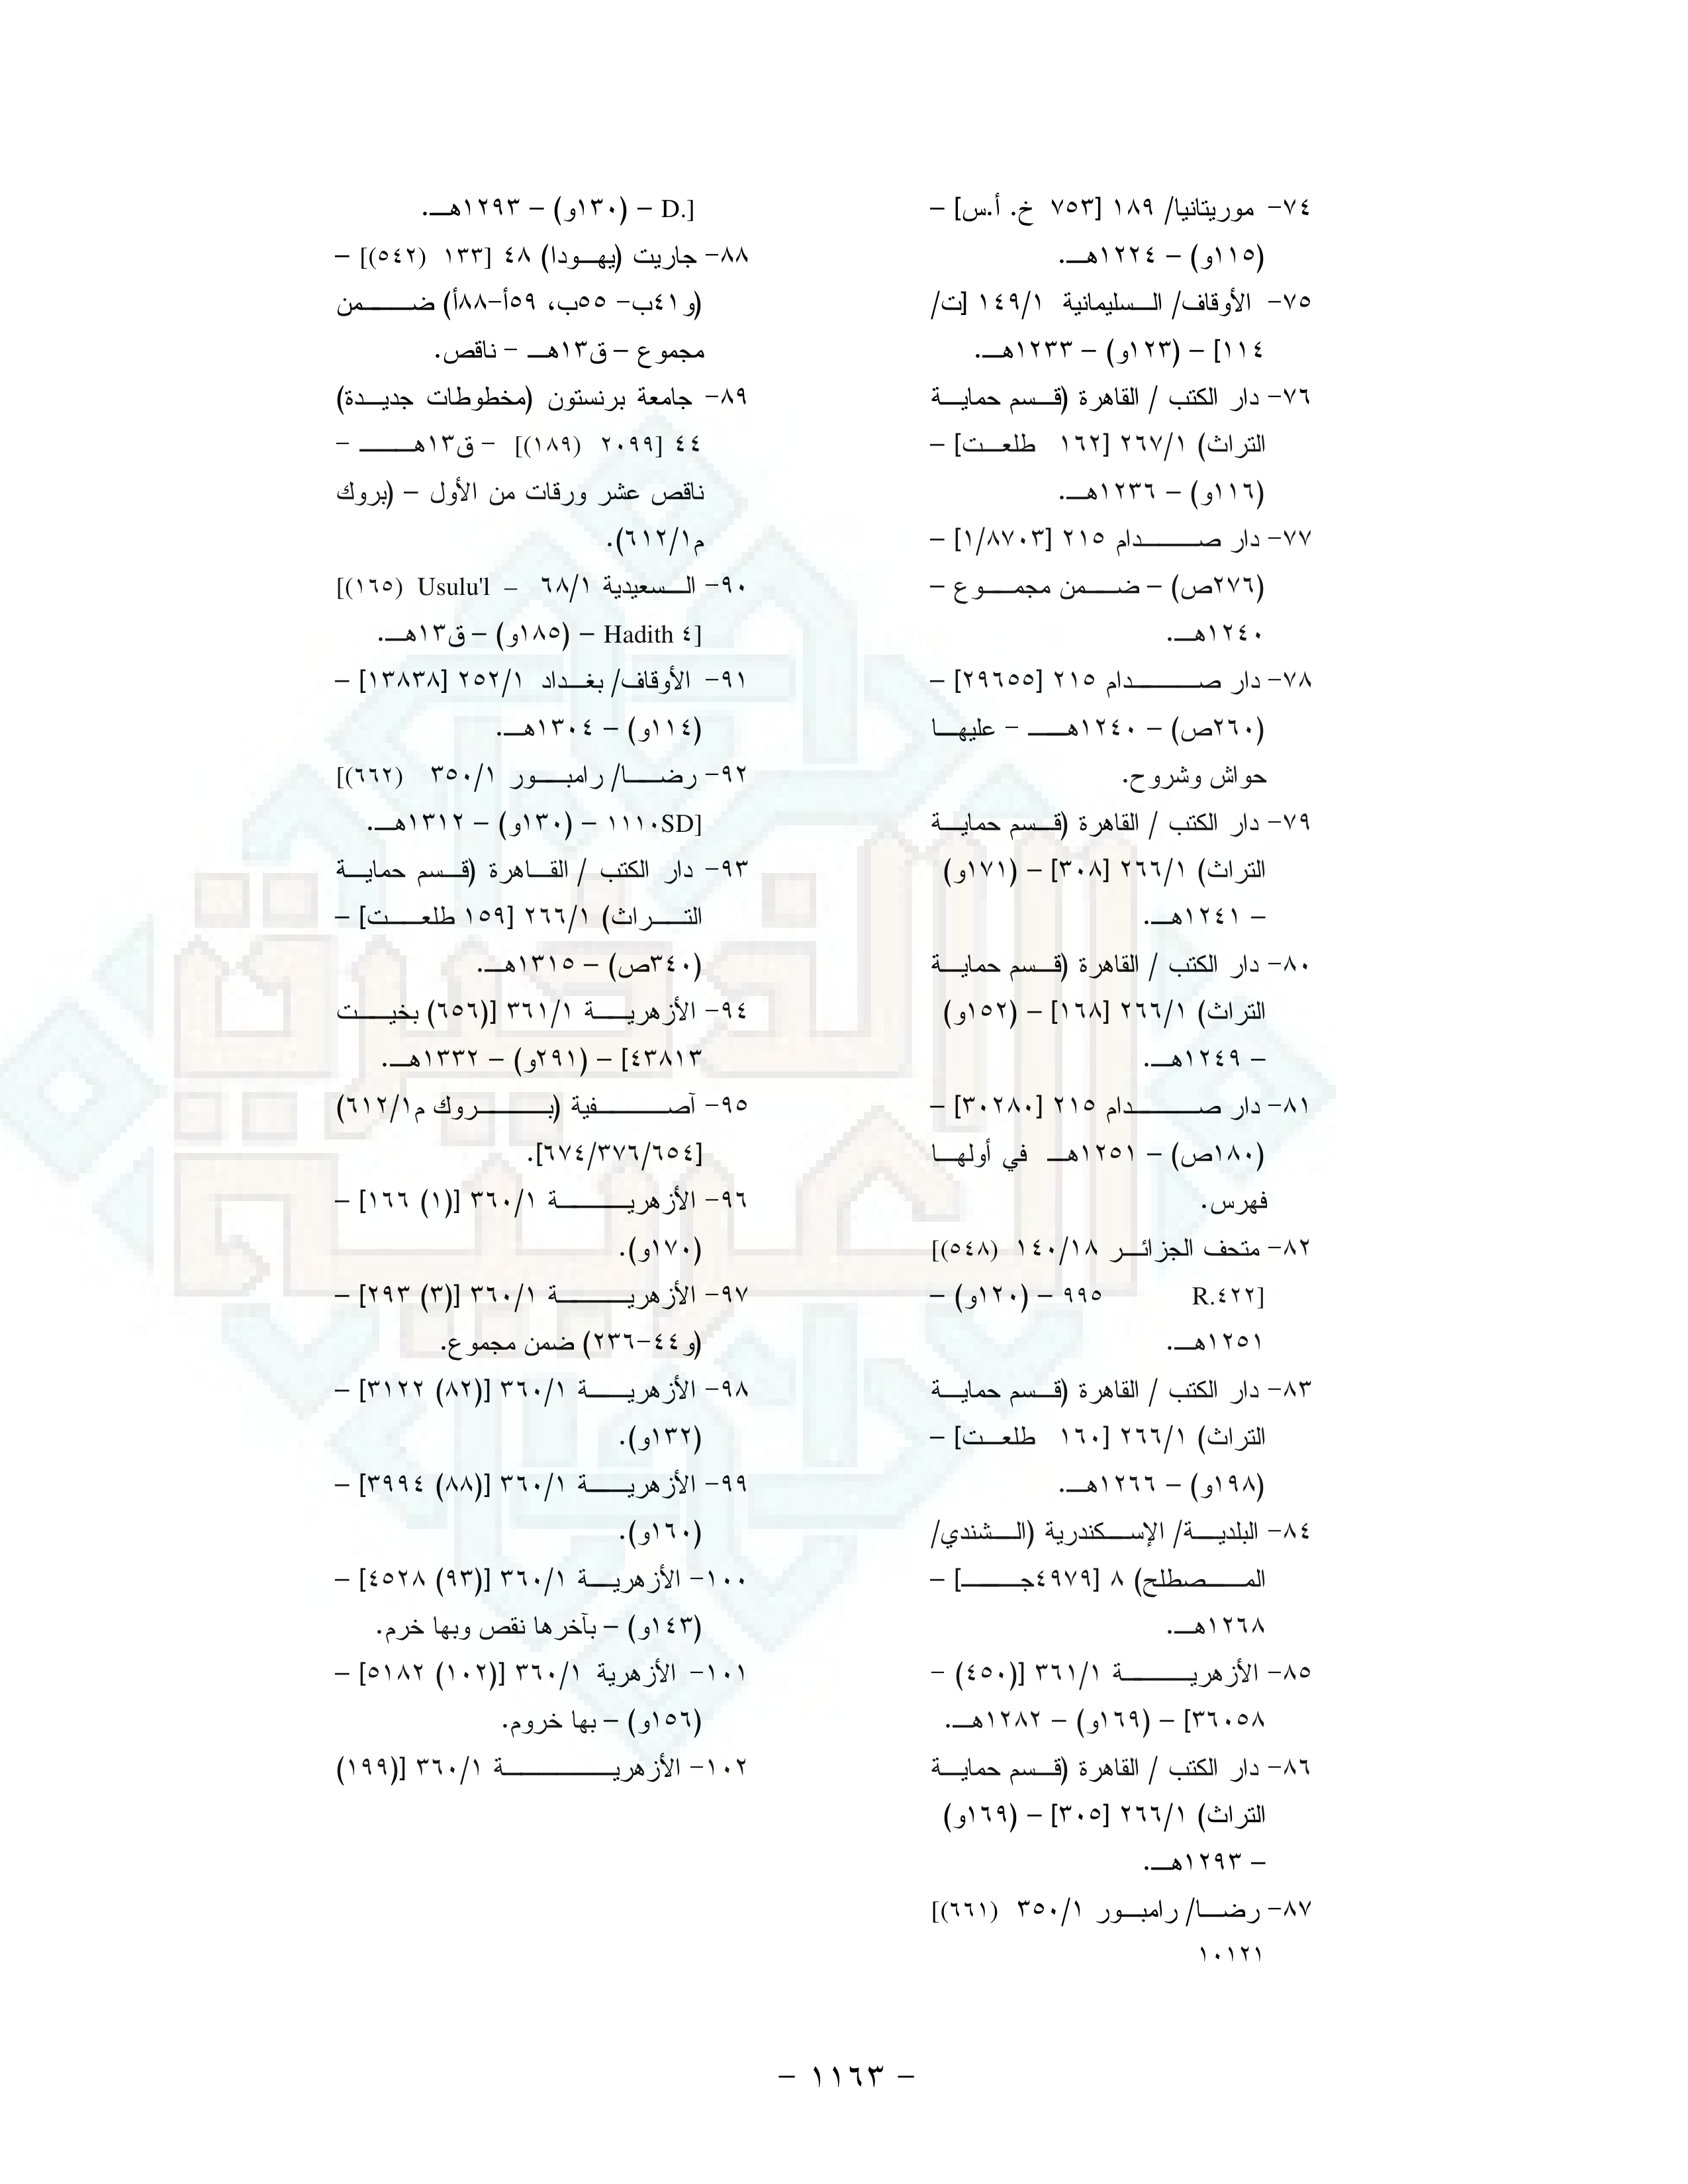 ٧٤- موريتانيا/ ١٨٩ [٧٥٣ خ. أ.س] –
(١١٥و) – ١٢٢٤هـ.
٧٥- الأوقاف/ السليمانية ١٤٩/١ [ت/
١١٤] – (١٢٣و) – ١٢٣٣هـ.
٧٦- دار الكتب / القاهرة (قسم حماية
التراث) ٢٦٧/١ [١٦٢ طلعت] –
(١١٦و) – ١٢٣٦هـ.
٧٧- دار صدام ٢١٥ [١/٨٧٠٣] –
(٢٧٦ص) – ضمن مجموع –
١٢٤٠هـ.
٧٨- دار صدام ٢١٥ [٢٩٦٥٥] –
(٢٦٠ص) – ١٢٤٠هـ – عليها
حواش وشروح.
٧٩- دار الكتب / القاهرة (قسم حماية
التراث) ٢٦٦/١ [٣٠٨] – (١٧١و)
– ١٢٤١هـ.
٨٠- دار الكتب / القاهرة (قسم حماية
التراث) ٢٦٦/١ [١٦٨] – (١٥٢و)
– ١٢٤٩هـ.
٨١- دار صدام ٢١٥ [٣٠٢٨٠] –
(١٨٠ص) – ١٢٥١هـ في أولها
فهرس.
٨٢- متحف الجزائر ١٤٠/١٨ (٥٤٨)]
[R.٤٢٢ ٩٩٥ – (١٢٠و) –
١٢٥١هـ.
٨٣- دار الكتب / القاهرة (قسم حماية
التراث) ٢٦٦/١ [١٦٠ طلعت] –
(١٩٨و) – ١٢٦٦هـ.
٨٤- البلدية/ الإسكندرية (الشندي/
المصطلح) ٨ [٤٩٧٩جـ] –
١٢٦٨هـ.
٨٥- الأزهرية ٣٦١/١ [(٤٥٠) -
٣٦٠٥٨] – (١٦٩و) – ١٢٨٢هـ.
٨٦- دار الكتب / القاهرة (قسم حماية
التراث) ٢٦٦/١ [٣٠٥] – (١٦٩و)
– ١٢٩٣هـ.
٨٧- رضا/ رامبور ٣٥٠/١ (٦٦١)]
١٠١٢١
[.D – (١٣٠و) – ١٢٩٣هـ.
٨٨- جاريت (يهودا) ٤٨ [١٣٣ (٥٤٢)] –
(و٤١ب- ٥٥ب، ٥٩أ-٨٨أ) ضمن
مجموع – ق١٣هـ – ناقص.
٨٩- جامعة برنستون (مخطوطات جديدة)
٤٤ [٢٠٩٩ (١٨٩)] – ق١٣هـ –
ناقص عشر ورقات من الأول – (بروك
م٦١٢/١).
٩٠- السعيدية ٦٨/١ – Usulu'l (١٦٥)]
[Hadith ٤ – (١٨٥و) – ق١٣هـ.
٩١- الأوقاف/ بغداد ٢٥٢/١ [١٣٨٣٨] –
(١١٤و) – ١٣٠٤هـ.
٩٢- رضا/ رامبور ٣٥٠/١ (٦٦٢)]
[١١١٠SD – (١٣٠و) – ١٣١٢هـ.
٩٣- دار الكتب / القاهرة (قسم حماية
التراث) ٢٦٦/١ [١٥٩ طلعت] –
(٣٤٠ص) – ١٣١٥هـ.
٩٤- الأزهرية ٣٦١/١ [(٦٥٦) بخيت
٤٣٨١٣] – (٢٩١و) – ١٣٣٢هـ.
٩٥- آصفية (بروك م٦١٢/١)
[٦٧٤/٣٧٦/٦٥٤].
٩٦- الأزهرية ٣٦٠/١ [(١) ١٦٦] –
(١٧٠و).
٩٧- الأزهرية ٣٦٠/١ [(٣) ٢٩٣] –
(و٤٤-٢٣٦) ضمن مجموع.
٩٨- الأزهرية ٣٦٠/١ [(٨٢) ٣١٢٢] –
(١٣٢و).
٩٩- الأزهرية ٣٦٠/١ [(٨٨) ٣٩٩٤] –
(١٦٠و).
١٠٠- الأزهرية ٣٦٠/١ [(٩٣) ٤٥٢٨] –
(١٤٣و) – بآخرها نقص وبها خرم.
١٠١- الأزهرية ٣٦٠/١ [(١٠٢) ٥١٨٢] –
(١٥٦و) – بها خروم.
١٠٢- الأزهرية ٣٦٠/١ [(١٩٩)
– ١١٦٣ –
الذخيرة
العربية